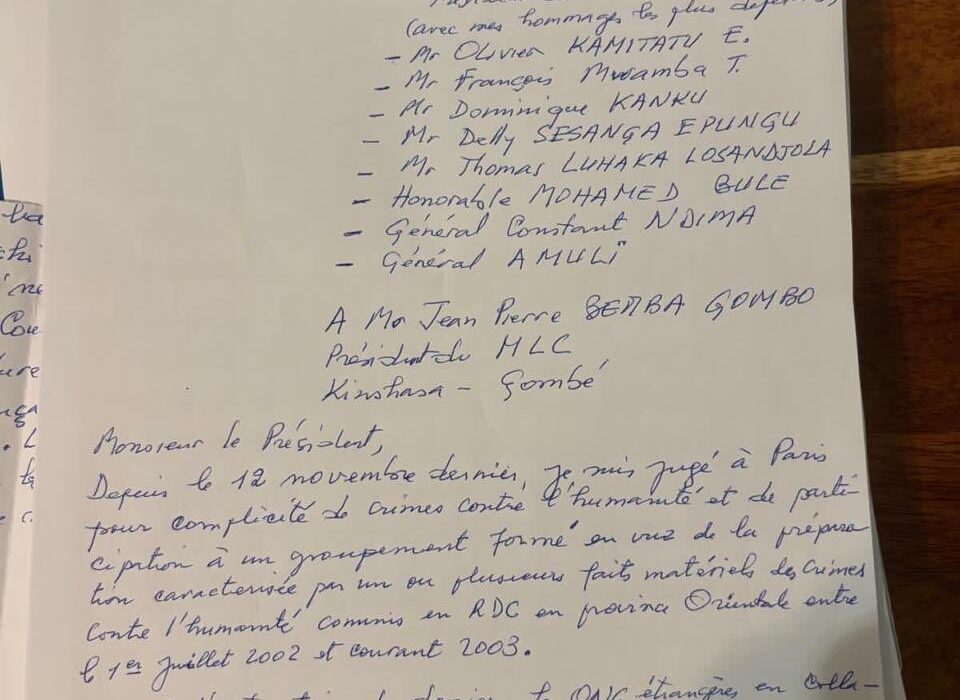 (avec mes hommages les plus
- Mr Olivier KAMITATU E.
- Mr François Mwamba T.
- Mr Dominique KANKU
- Mr Delly SESANGA EPUNGU
- Mr Thomas LUHAKA LOSANDJOLA
- Honorable MOHAMED BULE
- Général Constant NDIMA
- Général AMULI
A Mr Jean Pierre BEMBA GOMBO
Président du MLC
Kinshasa - Gombé
Monsieur le Président,
Depuis le 12 novembre dernier, je suis jugé à Paris
pour complicité de crimes contre l'humanité et de parti-
cipation à un groupement formé en vue de la prépara
tion caracterisée par un ou plusieurs faits matériels des crimes
contre l'humanité commis en RDC en province Orientale entre
le 1er Juillet 2002 et courant 2003.
ONG étrangères en colla-